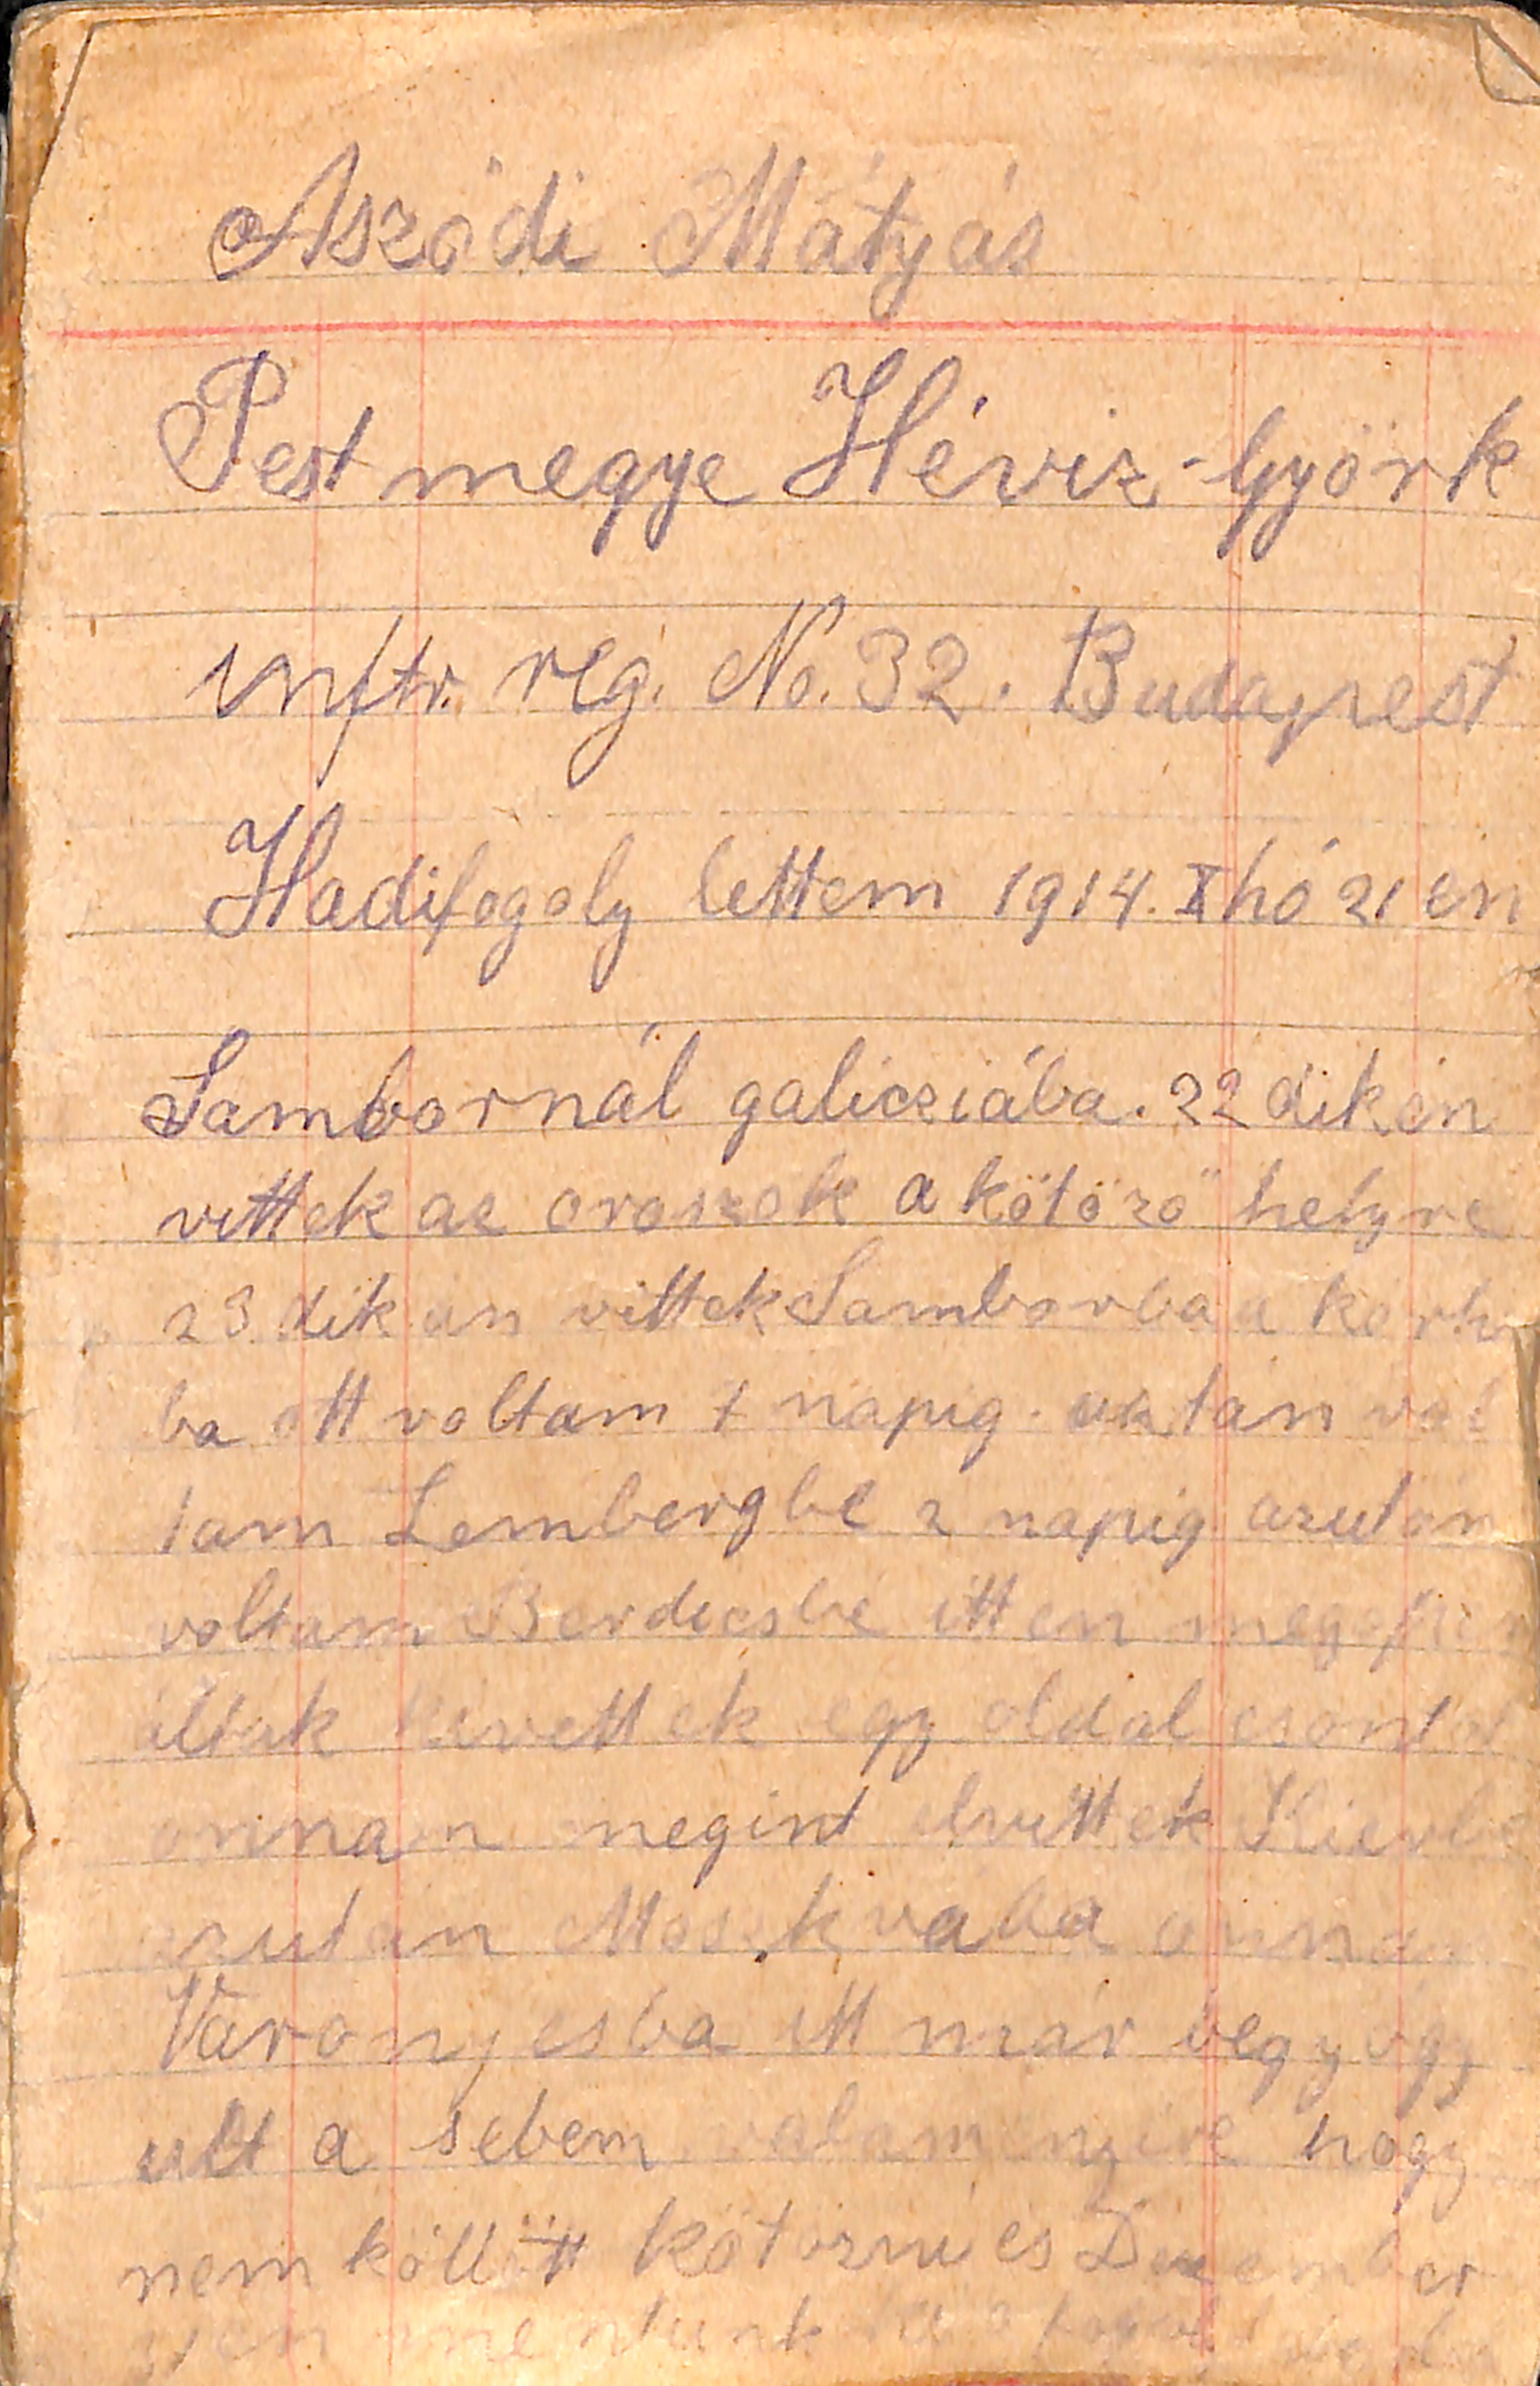 Aszódi Mátyás
Pest megye Héviz-Györk
inftr. reg. No. 32. Budapest
Hadifogoly lettem 1914. X hó 21 én
Sambornál galicziába. 22 dikén
vittek az oroszok a kötöző helyre
23 dikán vittek Samborba a korh
ba ott voltam 7 napig. aztán vol
tam Lembergbe 2 napig azután
voltam Berdicsbe itten megoper
áltak kivettek egy oldal csontot
onnan megint elvittek Kievbe
azután Moszkvaba onnan
Varonjesba itt már begyógy
ult a sebem valamenyire hogy
nem köllött kötözni és Dezember
mentunk